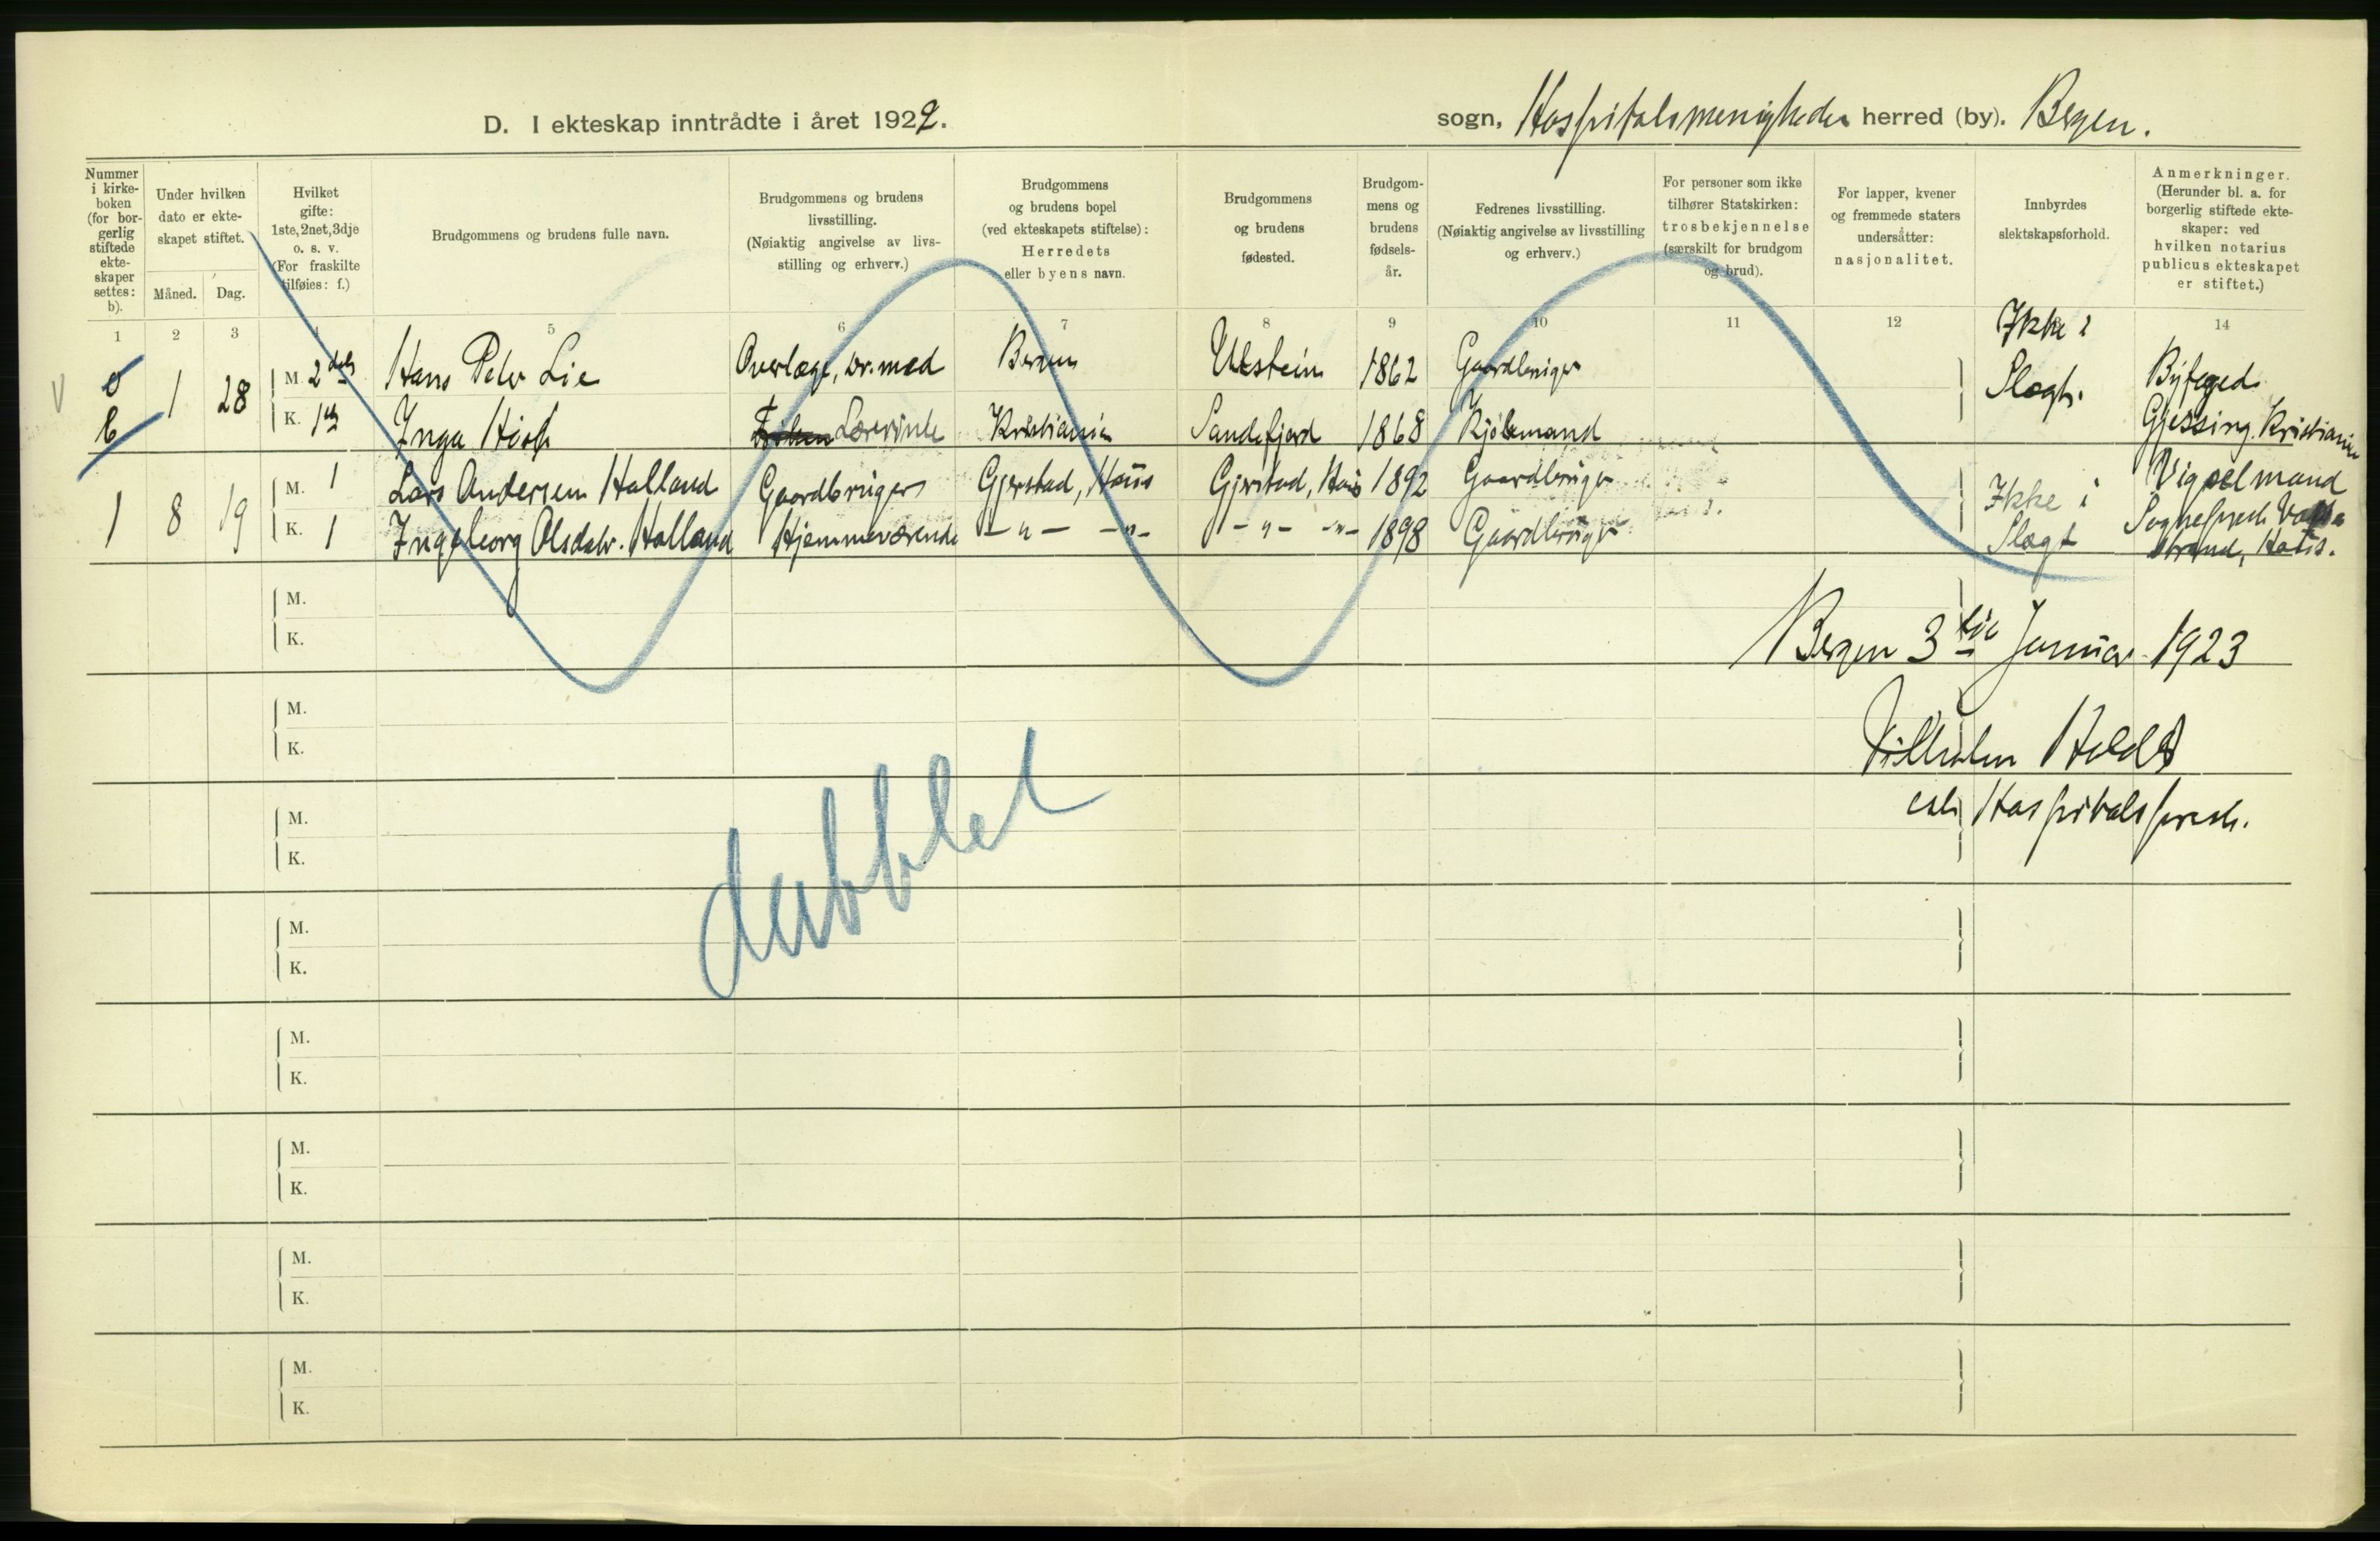 D. I ekteskap inntrådte i året 1922. sogn, Hospitalsmenigheden herred (by). Bergen.
Nummer i kirke-boken (for bor-gerlig stiftede ekte-skaper settes: b).
Under hvilken dato er ekte-skapet stiftet.
Måned. Dag.
Hvilket gifte: 1ste, 2net, 3dje o. s. v. (For fraskilte tilføies: f.)
Brudgommens og brudens fulle navn.
Brudgommens og brudens livsstilling. (Nøiaktig angivelse av livs-stilling og erhverv.)
Brudgommens og brudens bopel (ved ekteskapets stiftelse): Herredets eller byens navn.
Brudgommens og brudens fødested.
Brudgom-mens og brudens fødsels-år.
Fedrenes livsstilling. (Nøiaktig angivelse av livsstilling og erhverv.)
For personer som ikke tilhører Statskirken: trosbekjennelse (særskilt for brudgom og brud).
For lapper, kvener og fremmede staters undersåtter: nasjonalitet.
Innbyrdes slektskapsforhold.
Anmerkninger. (Herunder bl. a. for borgerlig stiftede ekte-skaper: ved hvilken notarius publicus ekteskapet er stiftet.)
1 2 3 4 5 6 7 8 9 10 11 12 14
0 b 1 28 M. 2det Hans Peter Lie Overlæge, Dr. med Bergen Ulstein 1862 Gaardbruger Ikke i Slægt. Byfoged
K. 1ste Inga Lærerinde Kristiania Sandefjord 1868 Kjøbmand Gjessing. Kristiania
1 8 19 M. 1 Lars Andersen Halland Gaardbruger Gjerstad, Haus Gjerstad, Haus 1892 Gaardbruger Ikke i Slægt Vigselmand
K. 1 Ingeborg Olsdatr. Halland Hjemmeværende -"- -"- -"- -"- 1898 Gaardbruger Sognepresh
Strand, Haus.
M.
K.
Bergen 3die Januar 1923
M.
K.
Vilhelm Holdt
M.
K.
Hospitalspresh.
dubblet
M.
K.
M.
K.
M.
K.
M.
K.
M.
K.